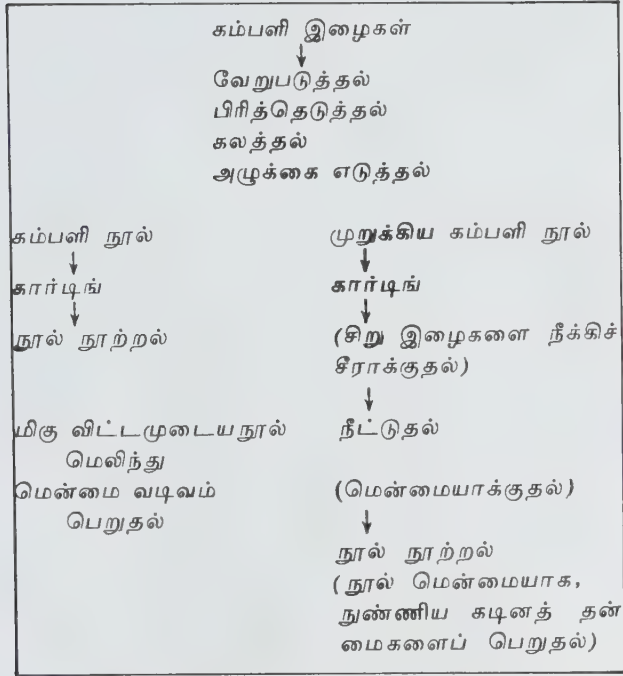 கம்பளி இழைகள்
↓
வேறுபடுத்தல்
பிரித்தெடுத்தல்
கலத்தல்
அழுக்கை எடுத்தல்
கம்பளி நூல்
↓
கார்டிங்
↓
நூல் நூற்றல்
மிகு விட்டமுடைய நூல்
மெலிந்து
மென்மை வடிவம்
பெறுதல்
முறுக்கிய கம்பளி நூல்
↓
கார்டிங்
↓
(சிறு இழைகளை நீக்கிச்
சீராக்குதல்)
↓
நீட்டுதல்
(மென்மையாக்குதல்)
↓
நூல் நூற்றல்
(நூல் மென்மையாக,
நுண்ணிய கடினத் தன்
மைகளைப் பெறுதல்)